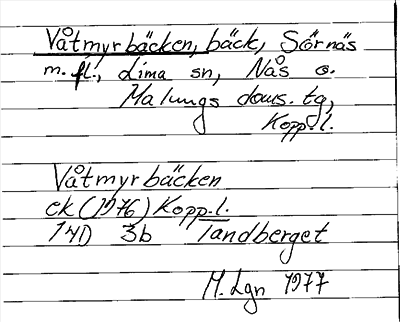 Våtmyrbäcken, bäck, Sörnäs
m.fl., Lima sn, Nås o.
Malungs doms. tg,
Kopp.l.
Våtmyrbäcken
ek (1976) Kopp.l.
14D 3b Tandberget
M. Lgn 1977